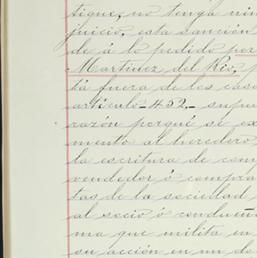 tigue, no tenga nin
juicio, esta sancion
de á lo pedido por
Martinez del Rio,
tá fuera de los caso
artículo 492. supu
razón porqué se ex
mento al heredero,
la escritura de com
vendedor ó compra
tas de la sociedad
al socio ó condueñ
ma que milita en
su acción en un de